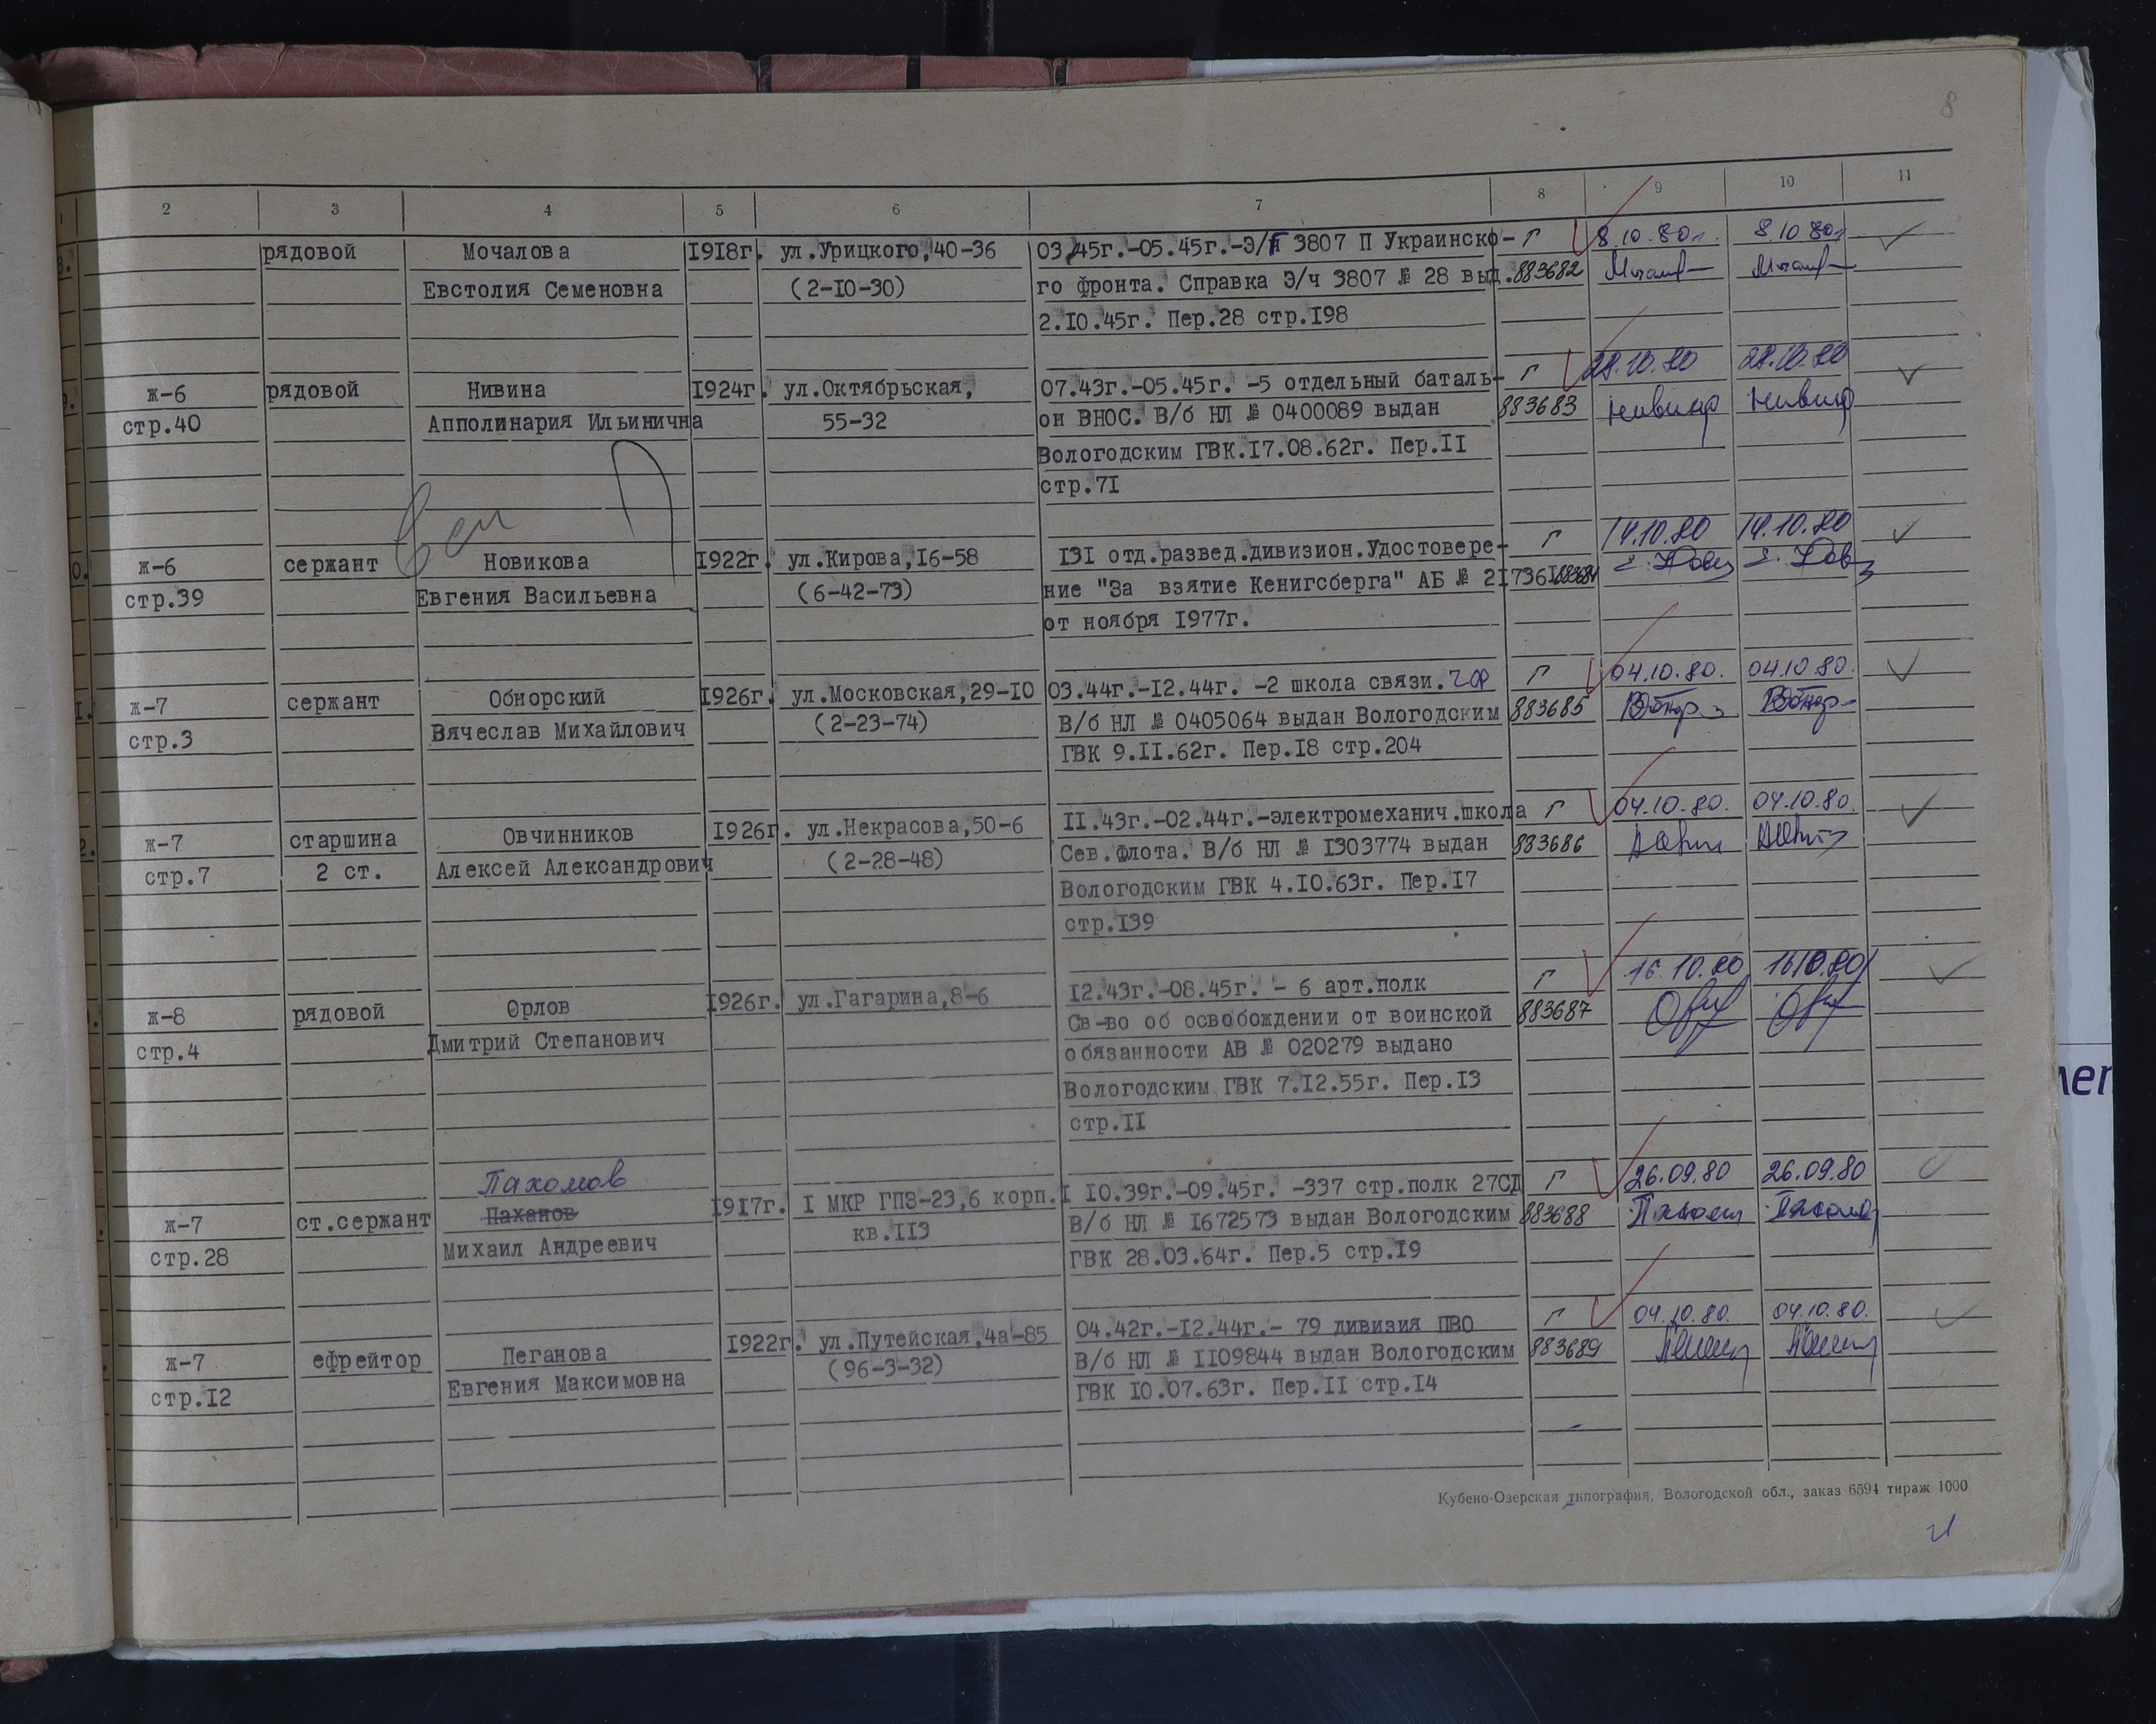 8
1 2 3 4 5 6 7 8 9 10 11
рядовой Мочалова 1918г. ул.Урицкого,40-36 03.45г.-05.45г.-Э/г 3807 П Украинско- Г 8.10.80г. 8.10.80г.
Евстолия Семеновна (2-10-30) го фронта. Справка Э/ч 3807 № 28 выд. 883682
2.10.45г. Пер.28 стр.198
ж-6 рядовой Нивина 1924г. ул.Октябрьская, 07.43г.-05.45г. -5 отдельный баталь- Г 28.10.80 28.10.80
стр.40 Апполинария Ильинична 55-32 он ВНОС. В/б НЛ № 0400089 выдан 883683 Нивина Нивина
Вологодским ГВК.17.08.62г. Пер.11
стр.71
ж-6 сержант Новикова 1922г. ул.Кирова,16-58 131 отд.развед.дивизион.Удостовере- Г 14.10.80 14.10.80
стр.39 Евгения Васильевна (6-42-73) ние "За взятие Кенигсберга" АБ № 217361 883684
от ноября 1977г.
ж-7 сержант Обнорский 1926г. ул.Московская,29-10 03.44г.-12.44г. -2 школа связи. Г 04.10.80. 04.10.80.
стр.3 Вячеслав Михайлович (2-23-74) В/б НЛ № 0405064 выдан Вологодским 883685
ГВК 9.11.62г. Пер.18 стр.204
ж-7 старшина Овчинников 1926г. ул.Некрасова,50-6 11.43г.-02.44г.-электромеханич.школа Г 04.10.80. 04.10.80.
стр.7 2 ст. Алексей Александрович (2-28-48) Сев.флота. В/б НЛ № 1303774 выдан 883686
Вологодским ГВК 4.10.63г. Пер.17
стр.139
ж-8 рядовой Орлов 1926г. ул.Гагарина,8-6 12.43г.-08.45г. - 6 арт.полк Г 16.10.80 16.10.80
стр.4 Дмитрий Степанович Св-во об освобождении от воинской 883687
обязанности АВ № 020279 выдано
Вологодским ГВК 7.12.55г. Пер.13
стр.11
Пахомов
ж-7 ст.сержант Паханов 1917г. 1 МКР ГПЗ-23,6 корп.1 10.39г.-09.45г. -337 стр.полк 27СД Г 26.09.80 26.09.80
стр.28 Михаил Андреевич кв.113 В/б НЛ № 1672573 выдан Вологодским 883688
ГВК 28.03.64г. Пер.5 стр.19
ж-7 ефрейтор Пеганова 1922г. ул.Путейская,4а-85 04.42г.-12.44г.- 79 дивизия ПВО Г 04.10.80. 04.10.80.
стр.12 Евгения Максимовна (96-3-32) В/б НЛ № 1109844 выдан Вологодским 883689
ГВК 10.07.63г. Пер.11 стр.14
Кубено-Озерская типография, Вологодской обл., заказ 6594 тираж 1000